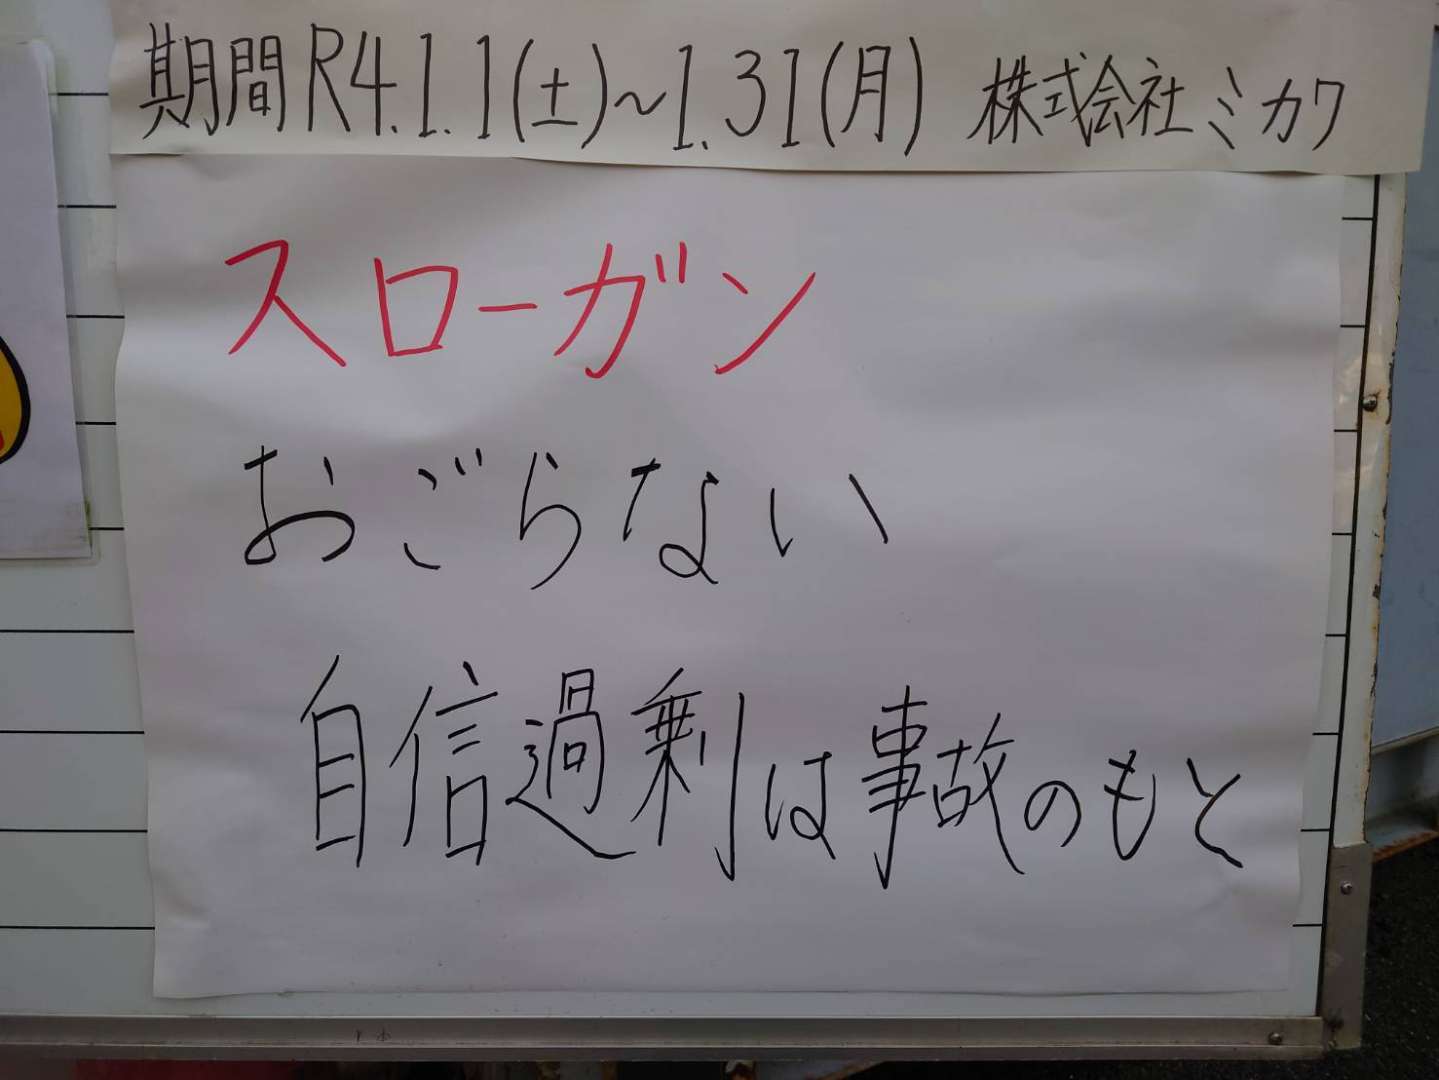 期間R4.1.1(土)~1.31(月) 株式会社ミカワ
スローガン
おごらない
自信過剰は事故のもと